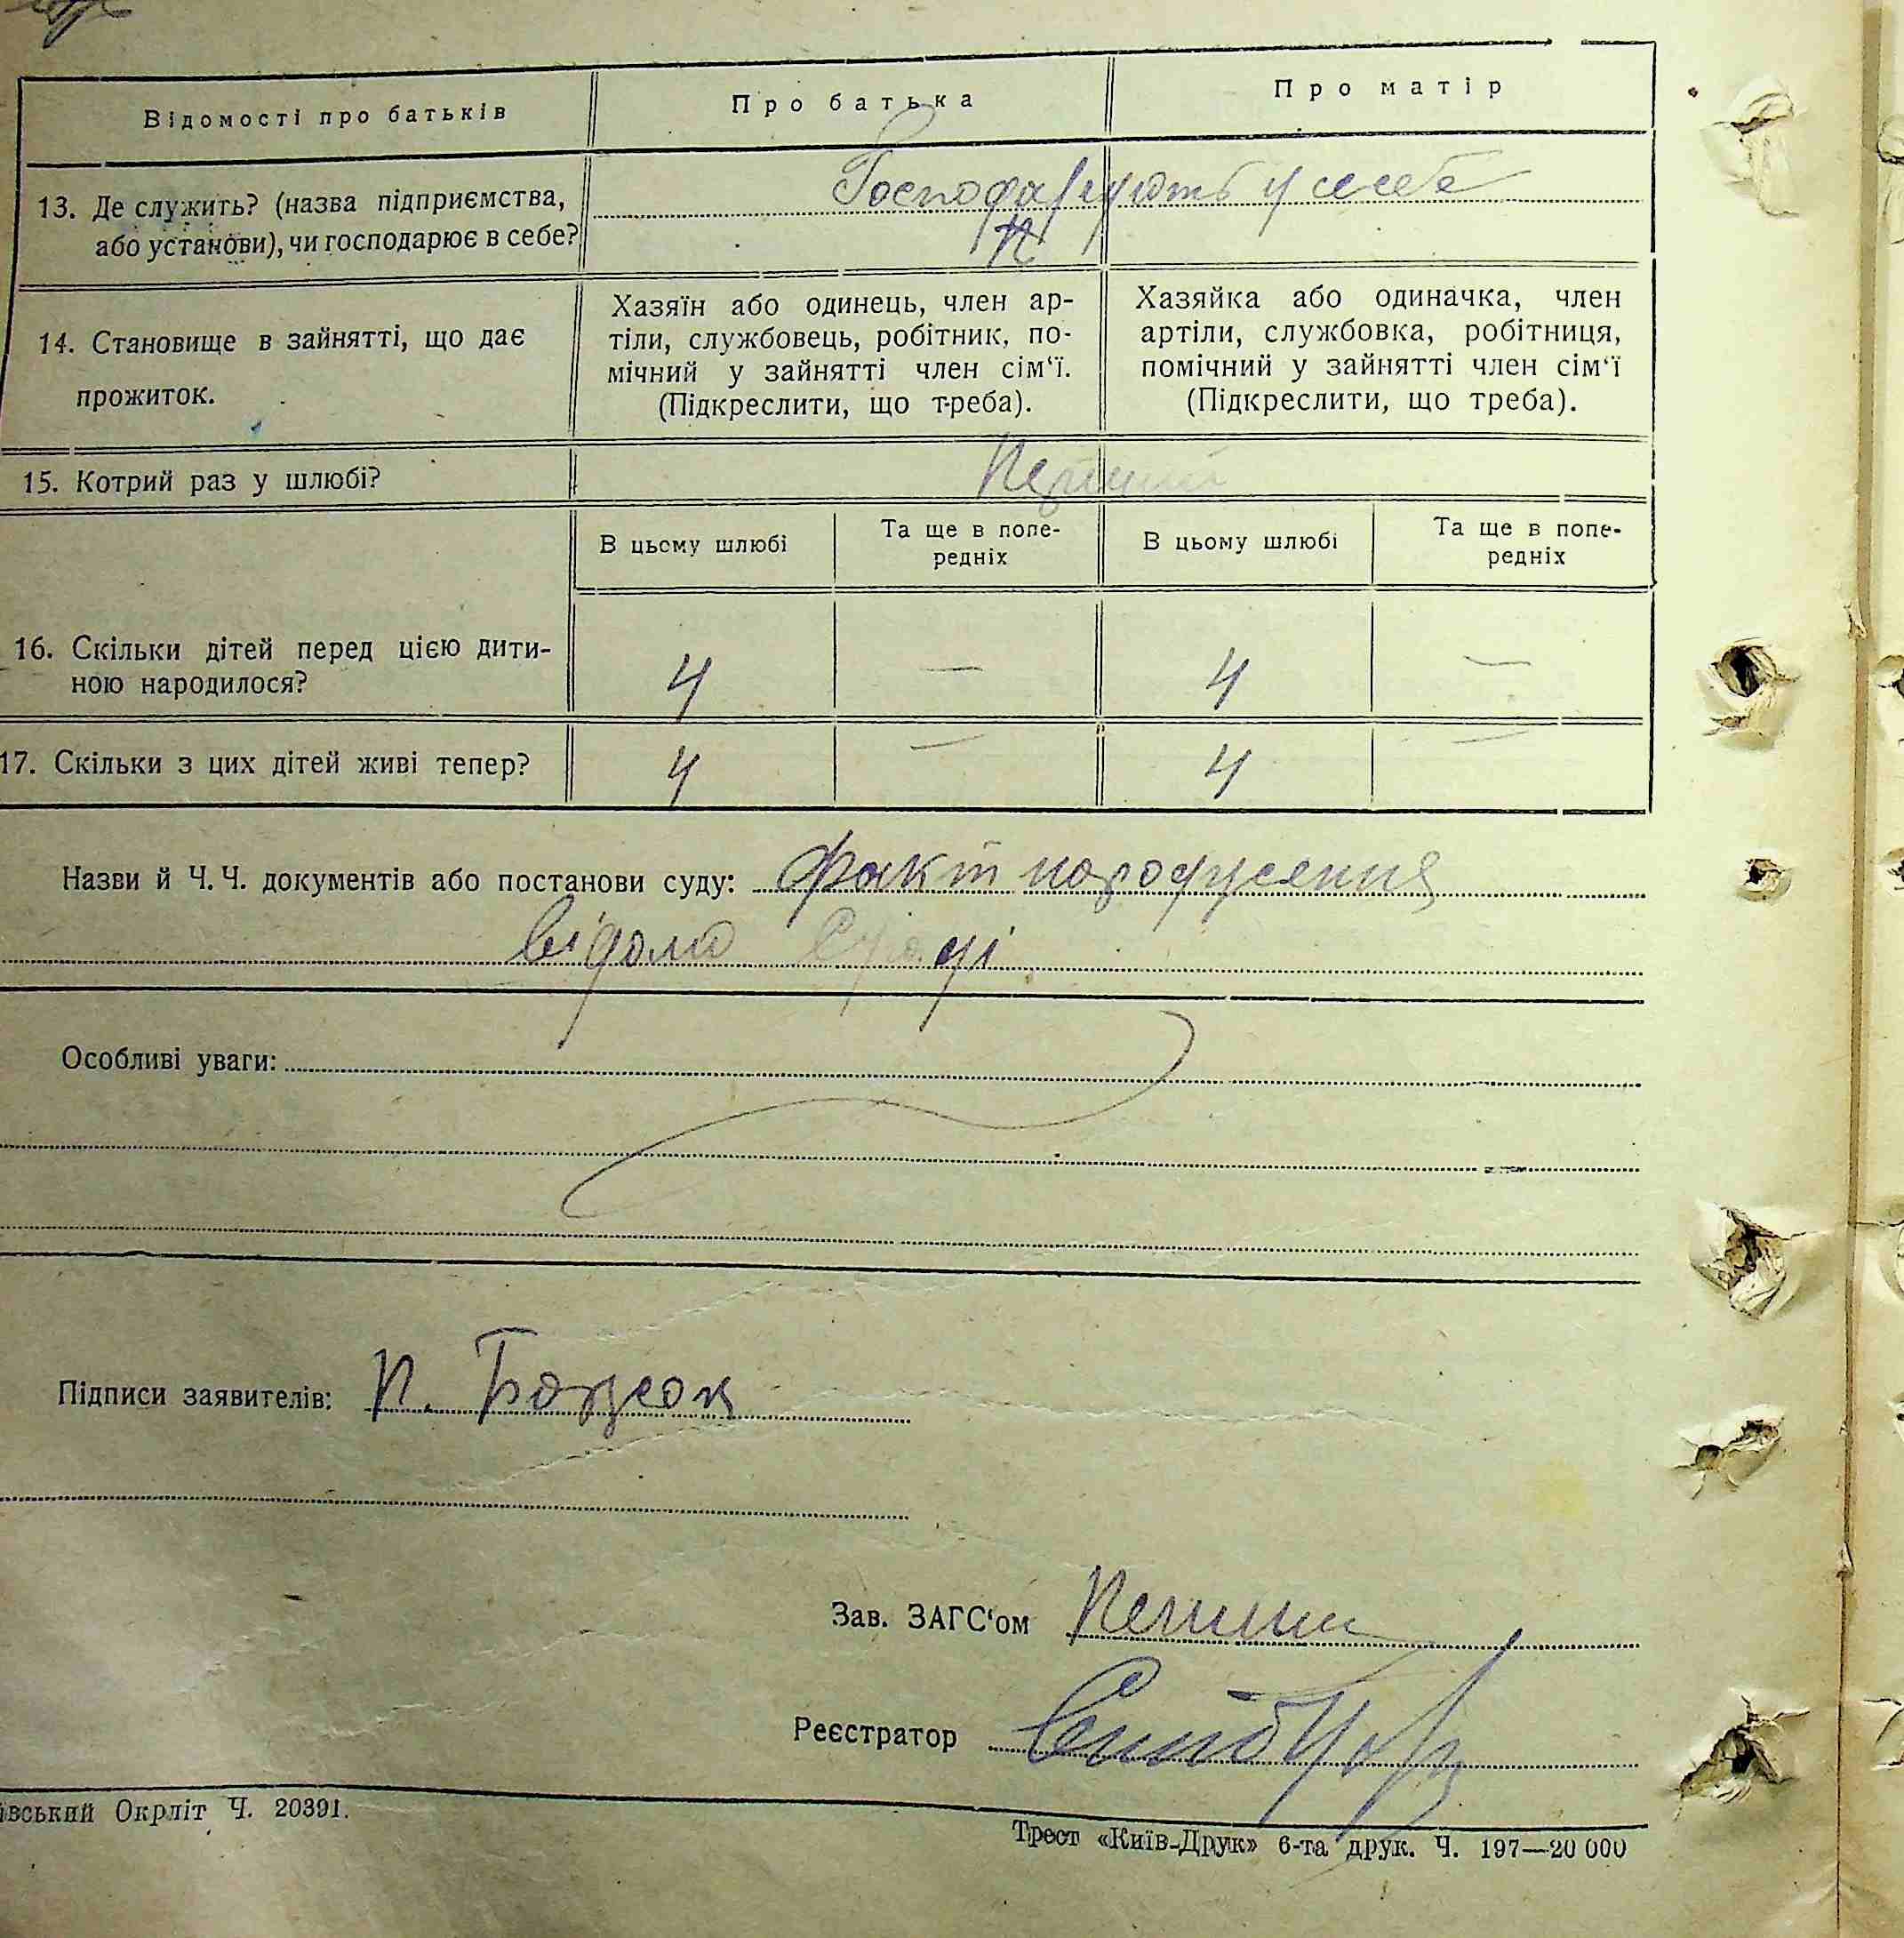 Відомості про батьків
Про батька
Про матір
13. Де служить? (назва підприємства,
або установи), чи господарює в себе?
Господарують у себе
14. Становище в зайнятті, що дає
прожиток.
Хазяїн або одинець, член ар-
тіли, службовець, робітник, по-
мічний у зайнятті член сім‘ї.
(Підкреслити, що треба).
Хазяйка або одиначка, член
артіли, службовка, робітниця,
помічний у зайнятті член сім‘ї
(Підкреслити, що треба).
15. Котрий раз у шлюбі?
Перший
В цьому шлюбі
Та ще в попе-
редніх
В цьому шлюбі
Та ще в попе-
редніх
16. Скільки дітей перед цією дити-
ною народилося?
4 — 4 —
17. Скільки з цих дітей живі тепер?
4 — 4 —
Назви й Ч. Ч. документів або постанови суду: факт народження
відомо
Особливі уваги:
Підписи заявителів: П.
Зав. ЗАГС‘ом
Реєстратор
ївський Окрліт Ч. 20391.
Трест «Київ-Друк» 6-та друк. Ч. 197—20 000